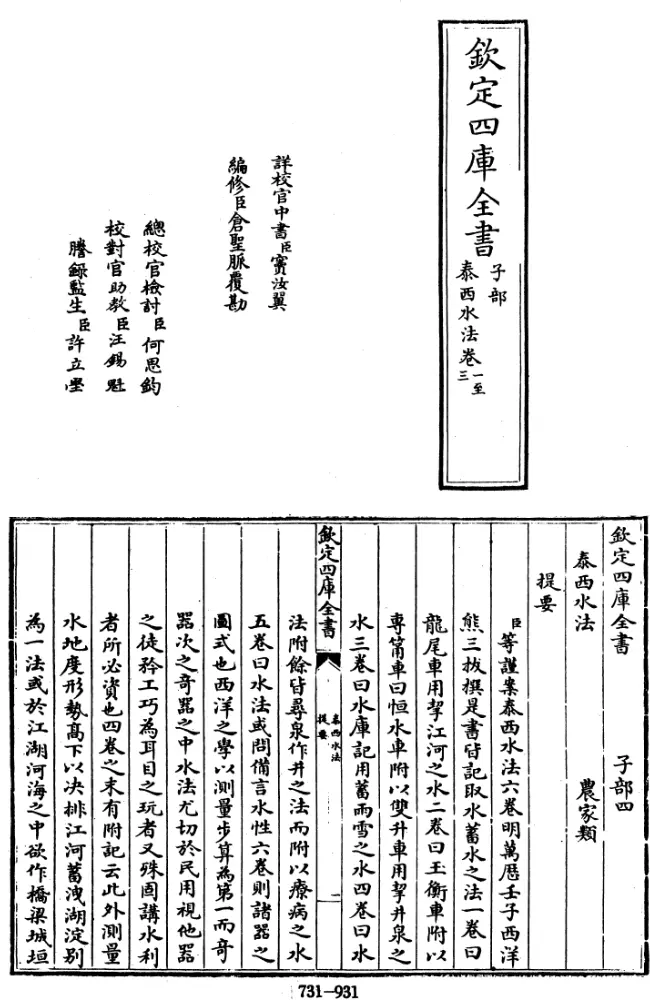 欽定四庫全書
子部
泰西水法卷一至三
詳校官中書臣竇汝翼
編修臣倉聖脈覆勘
總校官檢討臣何思鈞
校對官助教臣汪錫魁
謄錄監生臣許立堂
欽定四庫全書 子部四
泰西水法 農家類
提要
臣等謹案泰西水法六卷明萬厯壬子西洋
熊三拔撰是書皆記取水蓄水之法一卷曰
龍尾車用挈江河之水二卷曰玉衡車附以
専筩車曰恒水車附以雙升車用挈井泉之
水三卷曰水庫記用蓄雨雪之水四卷曰水
欽定四庫全書
泰西水法
提要
一
法附餘皆尋泉作井之法而附以療病之水
五卷曰水法或問備言水性六卷則諸器之
圖式也西洋之學以測量步算為第一而奇
器次之奇器之中水法尤切於民用視他器
之徒矜工巧為耳目之玩者又殊固講水利
者所必資也四卷之末有附記云此外測量
水地度形勢髙下以決排江河蓄洩湖淀别
為一法或於江湖河海之中欲作橋梁城垣
731—931